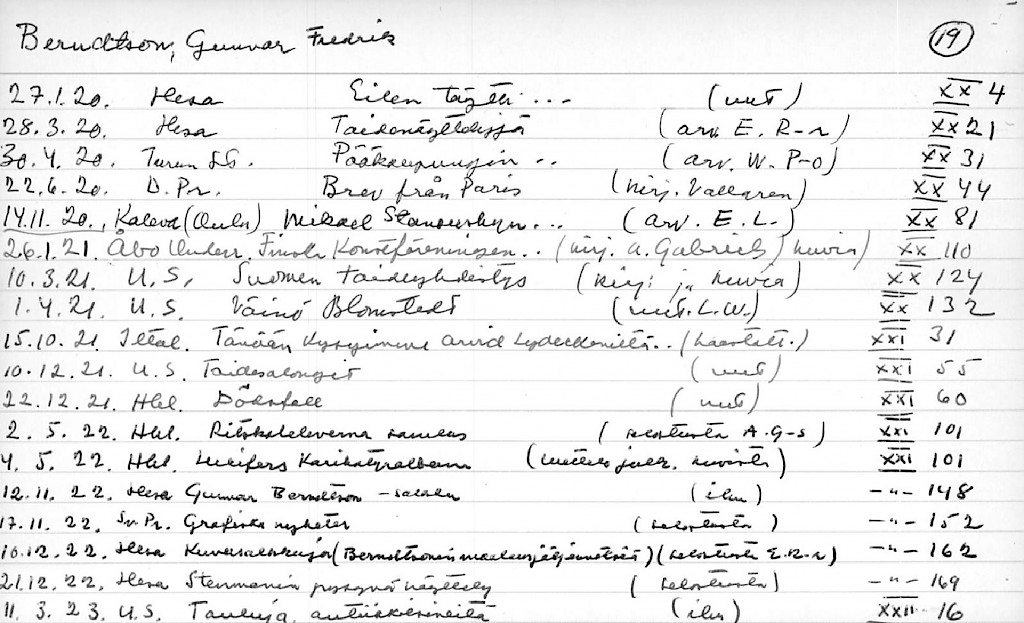 Berndtson, Gunnar Fredrik 19
27.1.20. Hesa Eilen täytti ... (uut) XX 4
28.3.20. Hesa Taidenäyttelyissä (arv. E. R-r) XX 21
30.4.20. Turun SS. Pääkaupungin .. (arv. W. P-o) XX 31
22.6.20. D. Pr. Brev från Paris (kirj. Vallgren) XX 44
14.11.20., Kaleva (Oulu) Mikael Stanewskyn ... (arv. E. L.) XX 81
26.1.21. Åbo Underr. Finska Konstföreningen .. (kirj. A. Gabriels) kuvia) XX 110
10.3.21. U.S. Suomen taideyhdistys (kirj. ja kuvia) XX 124
1.4.21. U.S. Väinö Blomstedt (uut. L.W.) XX 132
15.10.21. Iltal. Tänään kysyimme Arvid Lydeckeniltä .. (haastatt.) XXI 31
10.12.21. U.S. Taidesalongit (uut) XXI 55
22.12.21. Hbl. Dödsfall (uut) XXI 60
2.5.22. Hbl. Ritskoleleverna samlas (selostusta A. G-s) XXI 101
4.5.22. Hbl. Lucifers Karikatyralbum (luettelo julk. kuvista) XXI 101
12.11.22. Hesa Gunnar Berndtson - (ilm) -"- 148
17.11.22. Sv. Pr. Grafiska nyheter (selostusta) -"- 152
10.12.22. Hesa (Berndtsonin maalausjäljennöksiä) (selostusta E. R-r) -"- 162
21.12.22. Hesa Stenmanin pysyvä näyttely (selostusta) -"- 169
11.3.23. U.S. Tauluja, antiikkiesineitä (ilm) XXII 16